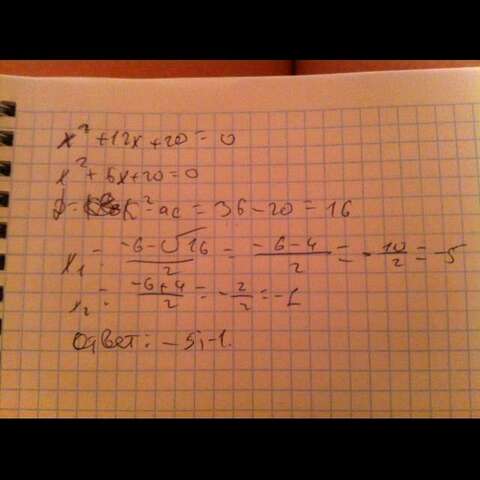 x² + 12x + 20 = 0
x² + 6x + 20 = 0
D = k² - ac = 36 - 20 = 16
x₁ = (-6 - √16)/2 = (-6 - 4)/2 = -10/2 = -5
x₂ = (-6 + 4)/2 = -2/2 = -1
Ответ: -5; -1.